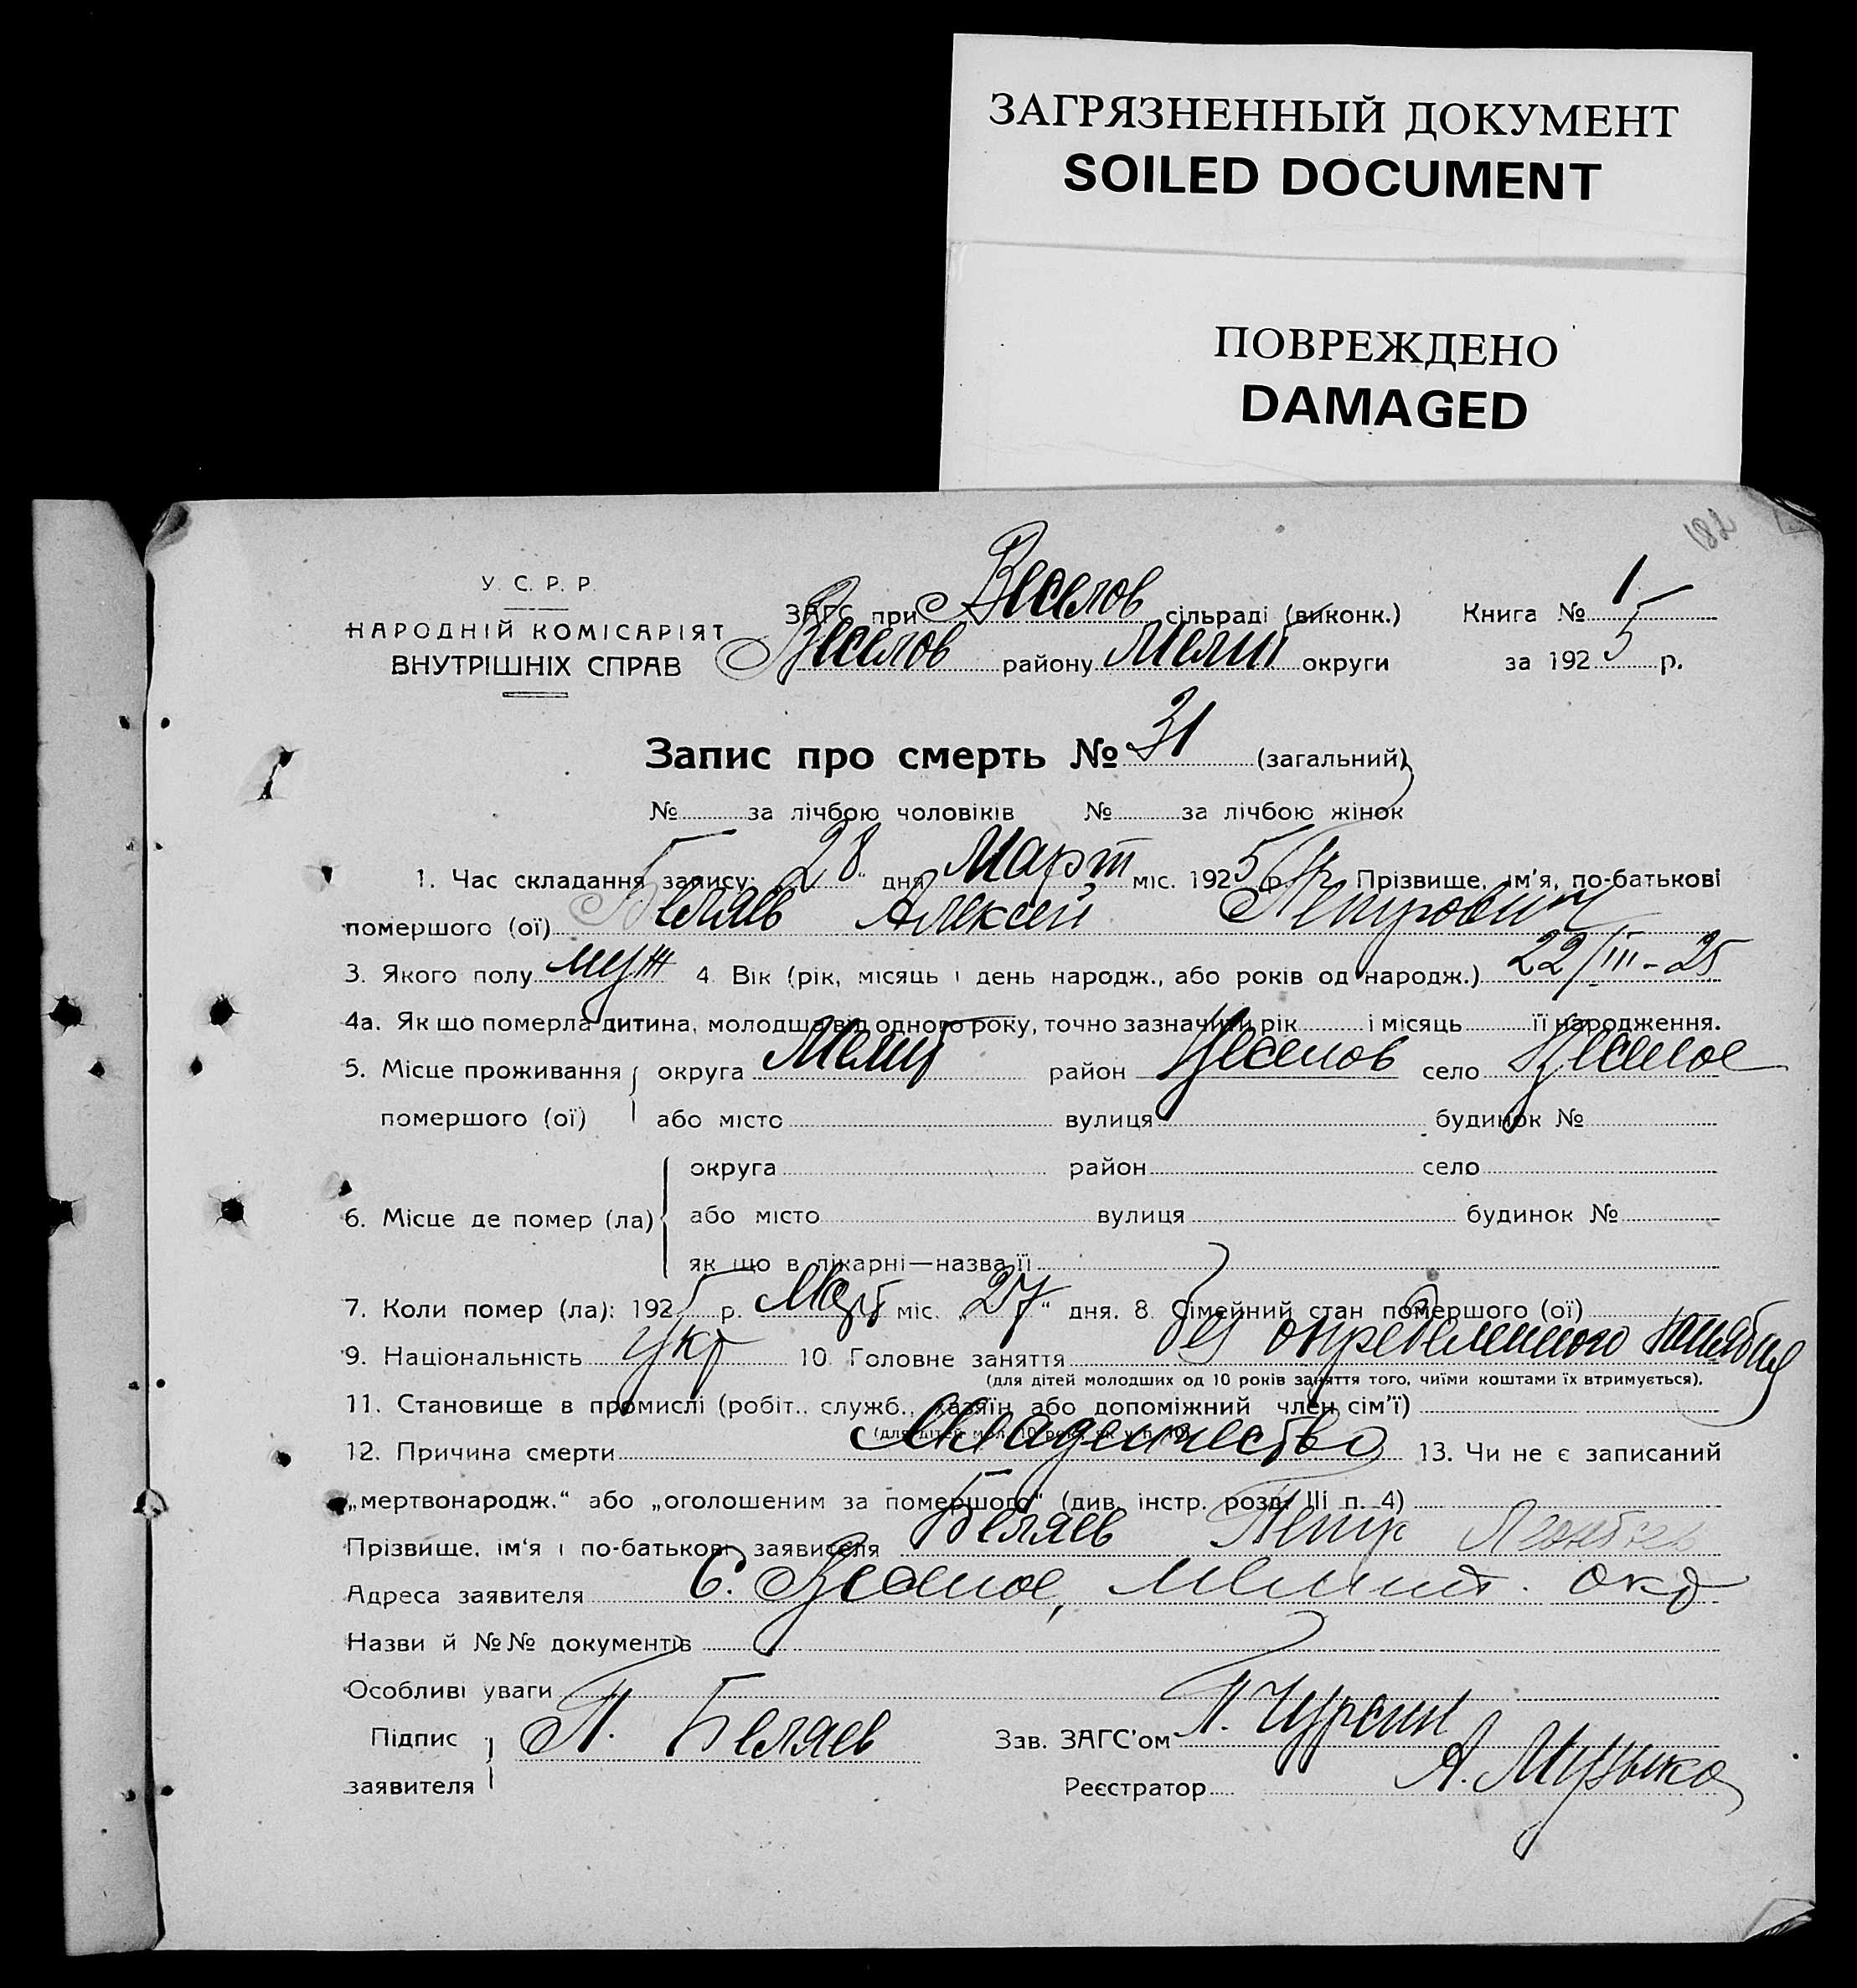 ЗАГРЯЗНЕННЫЙ ДОКУМЕНТ
SOILED DOCUMENT
ПОВРЕЖДЕНО
DAMAGED
182
У. С. Р. Р.
НАРОДНІЙ КОМІСАРІЯТ
ВНУТРІШНІХ СПРАВ
ЗАГС при Веселов сільраді (виконк.) Книга № 1
Веселов району Мелит округи за 1925 р.
Запис про смерть № 31 (загальний)
№ за лічбою чоловіків № за лічбою жінок
1. Час складання запису: 28 " дня Март міс. 1925 р. 2. Прізвище, ім'я, по-батькові
помершого (ої) Беляев Алексей Петрович
3. Якого полу муж 4. Вік (рік, місяць і день народж., або років од народж.) 22/III-25
4а. Як що померла дитина, молодша від одного року, точно зазначити рік і місяць її народження.
5. Місце проживання округа Мелит район Веселов село Веселое
помершого (ої) або місто вулиця будинок №
округа район село
6. Місце де помер (ла) або місто вулиця будинок №
як що в лікарні—назва її
7. Коли помер (ла): 1925 р. Март міс. „27" дня. 8. Сімейний стан помершого (ої)
9. Національність укр 10. Головне заняття без определенного занятия
(для дітей молодших од 10 років заняття того, чиїми коштами їх втримується).
11. Становище в промислі (робіт., служб., хазяїн або допоміжний член сім'ї)
(для дітей мол. 10 років як у п. 10)
12. Причина смерти Младенчество 13. Чи не є записаний
„мертвонародж." або „оголошеним за помершого" (див. інстр. розд. III п. 4)
Прізвище, ім'я і по-батькові заявителя Беляев Петр Леонтьев
Адреса заявителя С. Веселое, Мелит. окр
Назви й №№ документів
Особливі уваги
Підпис заявителя П. Беляев Зав. ЗАГС'ом П. Чурсин
Реєстратор А. Музыка